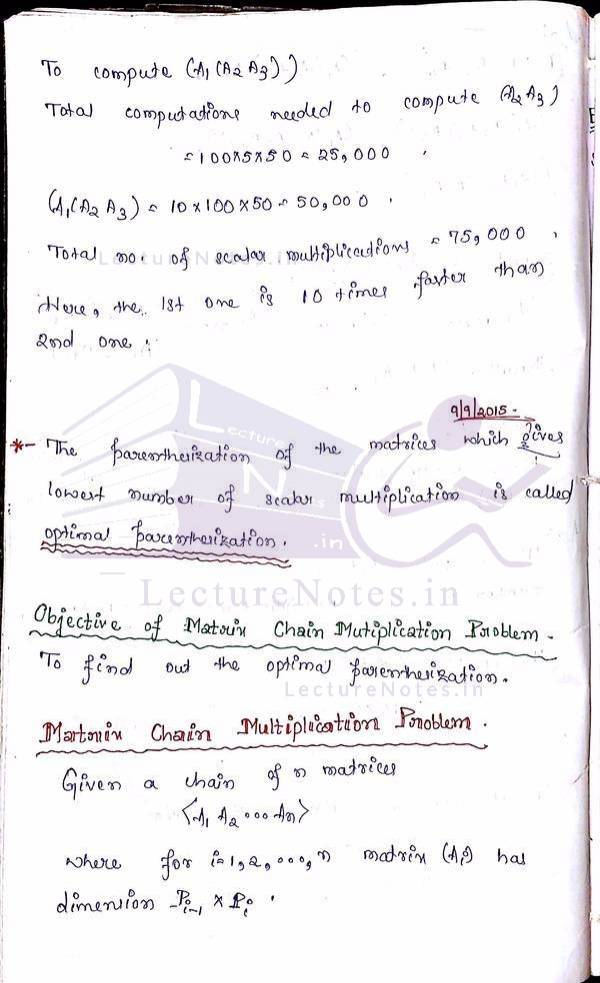 To compute (A₁(A₂A₃))
Total computations needed to compute (A₂A₃)
= 100×5×50 = 25,000 .
(A₁(A₂A₃) = 10×100×50 = 50,000 .
Total no. of scalar multiplications = 75,000 .
LectureNotes.in
Here, the 1st one is 10 times faster than
2nd one .
9/9/2015 -
*- The parentherization of the matrices which gives
Lecture
lowest number of scalar multiplication is called
Notes
optimal parentherization .
.in
LectureNotes.in
Objective of Matrix Chain Mutiplication Problem -
To find out the optimal parentherization .
LectureNotes.in
Matrix Chain Multiplication Problem .
Given a chain of n matrices
<A₁ A₂ ... An>
where for i=1,2,...,n matrix (Ai) has
dimension Pi-1 × Pi .